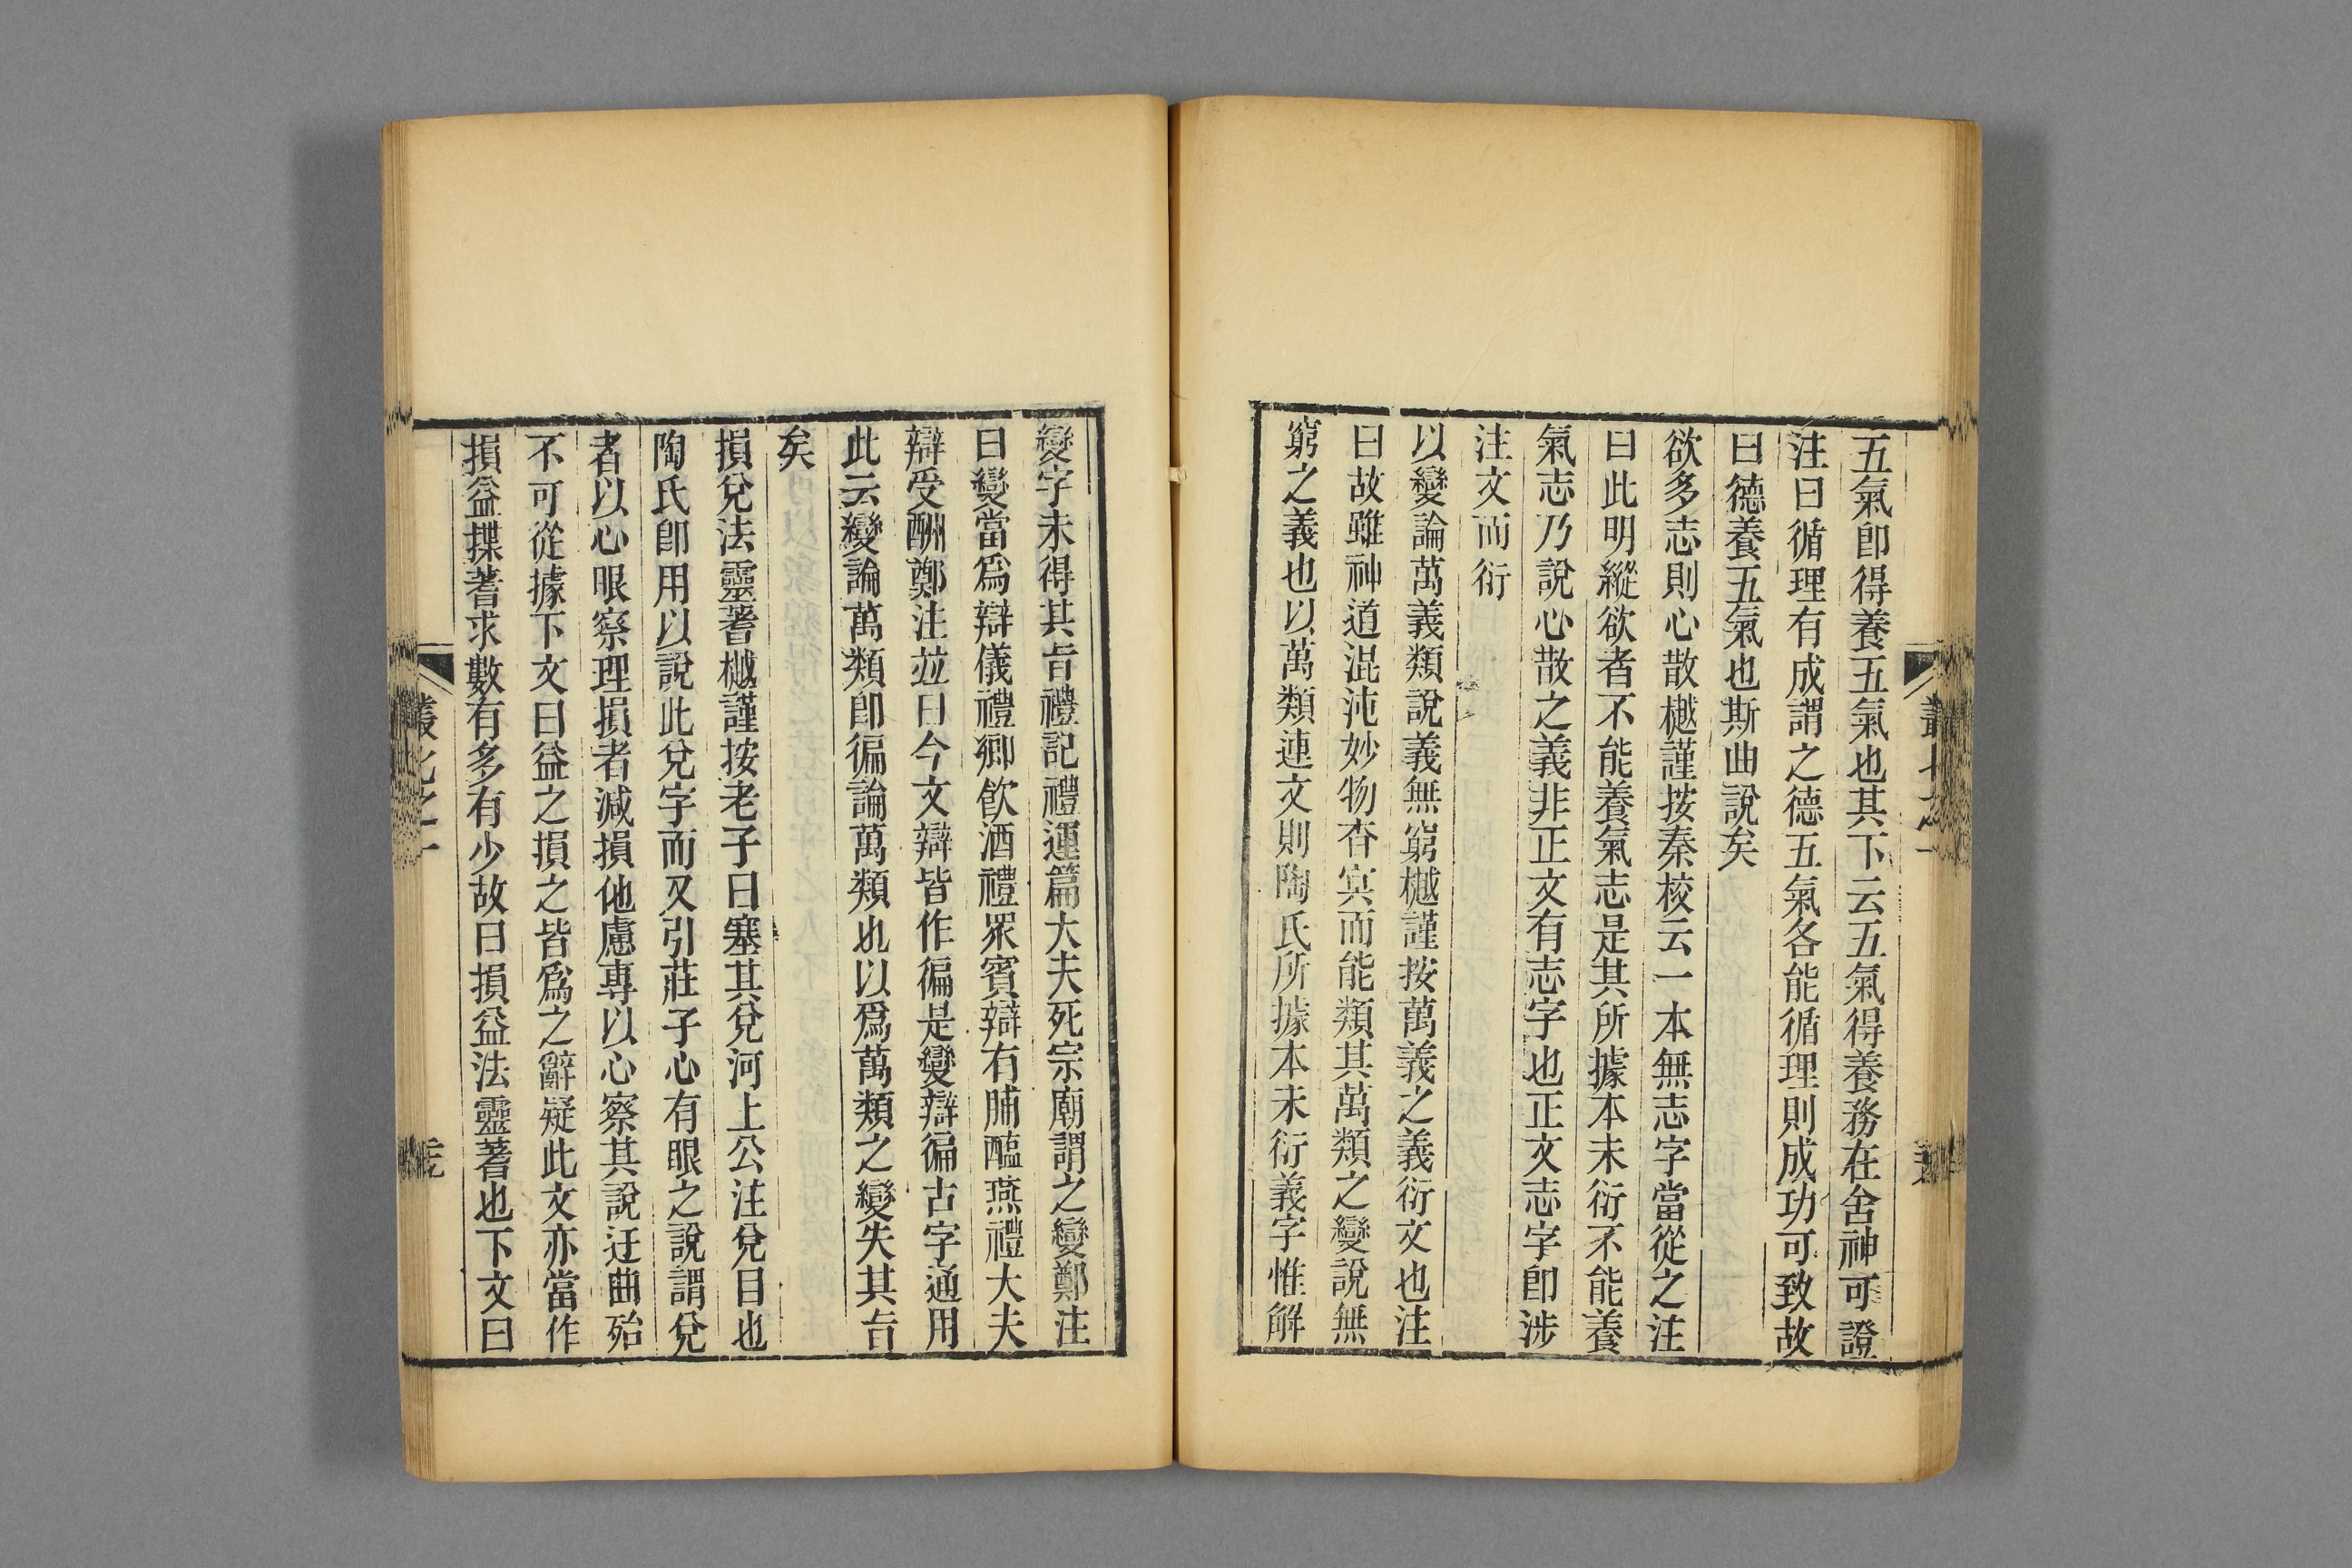 五氣卽得養五氣也其下云五氣得養務在舍神可證
注曰循理有成謂之德五氣各能循理則成功可致故
曰德養五氣也斯曲說矣
欲多志則心散樾謹按秦校云一本無志字當從之注
曰此明縱欲者不能養氣志是其所據本未衍不能養
氣志乃說心散之義非正文有志字也正文志字卽涉
注文而衍
以變論萬義類說義無窮樾謹按萬義之義衍文也注
曰故雖神道混沌妙物杳冥而能類其萬類之變說無
窮之義也以萬類連文則陶氏所據本未衍義字惟解
變字未得其旨禮記禮運篇大夫死宗廟謂之變鄭注
曰變當爲辯儀禮鄉飲酒禮眾賓辯有脯醢燕禮大夫
辯受酬鄭注竝曰今文辯皆作徧是變辯徧古字通用
此云變論萬類卽徧論萬類也以爲萬類之變失其旨
矣
損兌法靈蓍樾謹按老子曰塞其兌河上公注兌目也
陶氏卽用以說此兌字而又引莊子心有眼之說謂兌
者以心眼察理損者減損他慮專以心察其說迂曲殆
不可從據下文曰益之損之皆爲之辭疑此文亦當作
損益揲蓍求數有多有少故曰損益法靈蓍也下文曰